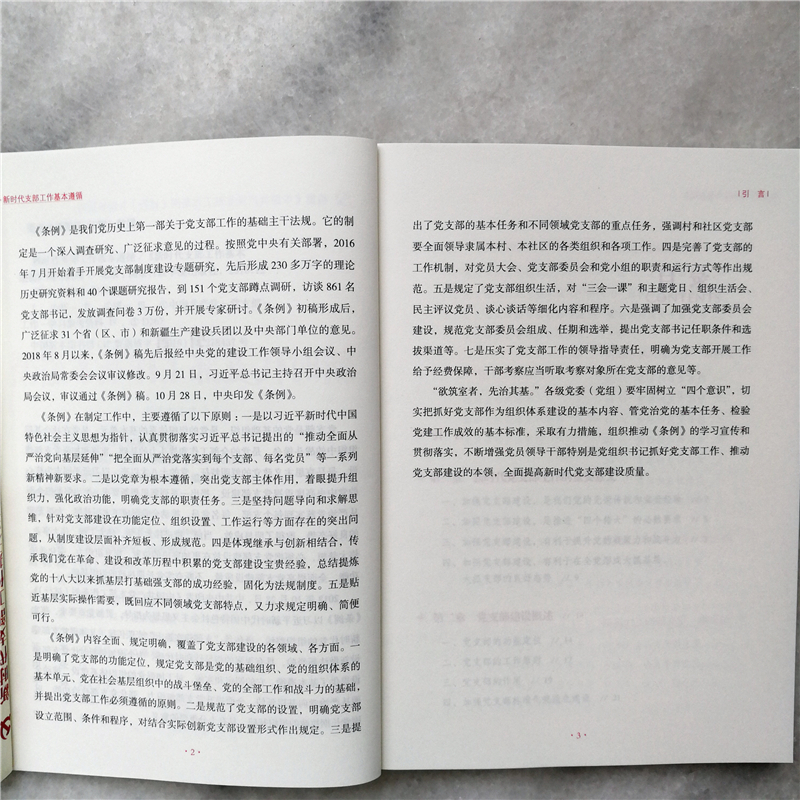 新时代支部工作基本遵循
《条例》是我们党历史上第一部关于党支部工作的基础主干法规。它的制
定是一个深入调查研究、广泛征求意见的过程。按照党中央有关部署，2016
年7月开始着手开展党支部制度建设专题研究，先后形成230多万字的理论
历史研究资料和40个课题研究报告，到151个党支部蹲点调研，访谈861名
党支部书记，发放调查问卷3万份，并开展专家研讨。《条例》初稿形成后，
广泛征求31个省（区、市）和新疆生产建设兵团以及中央部门单位的意见。
2018年8月以来，《条例》稿先后报经中央党的建设工作领导小组会议、中
央政治局常委会会议审议修改。9月21日，习近平总书记主持召开中央政治
局会议，审议通过《条例》稿。10月28日，中央印发《条例》。
《条例》在制定工作中，主要遵循了以下原则：一是以习近平新时代中国
特色社会主义思想为指针，认真贯彻落实习近平总书记提出的“推动全面从
严治党向基层延伸”“把全面从严治党落实到每个支部、每名党员”等一系列
新精神新要求。二是以党章为根本遵循，突出党支部主体作用，着眼提升组
织力，强化政治功能，明确党支部的职责任务。三是坚持问题导向和求解思
维，针对党支部建设在功能定位、组织设置、工作运行等方面存在的突出问
题，从制度建设层面补齐短板、形成规范。四是体现继承与创新相结合，传
承我们党在革命、建设和改革历程中积累的党支部建设宝贵经验，总结提炼
党的十八大以来抓基层打基础强支部的成功经验，固化为法规制度。五是贴
近基层实际操作需要，既回应不同领域党支部特点，又力求规定明确、简便
可行。
《条例》内容全面、规定明确，覆盖了党支部建设的各领域、各方面。一
是明确了党支部的功能定位，规定党支部是党的基础组织、党的组织体系的
基本单元、党在社会基层组织中的战斗堡垒、党的全部工作和战斗力的基础，
并提出党支部工作必须遵循的原则。二是规范了党支部的设置，明确党支部
设立范围、条件和程序，对结合实际创新党支部设置形式作出规定。三是提
·2·
引 言
出了党支部的基本任务和不同领域党支部的重点任务，强调村和社区党支部
要全面领导隶属本村、本社区的各类组织和各项工作。四是完善了党支部的
工作机制，对党员大会、党支部委员会和党小组的职责和运行方式等作出规
范。五是规定了党支部组织生活，对“三会一课”和主题党日、组织生活会、
民主评议党员、谈心谈话等细化内容和程序。六是强调了加强党支部委员会
建设，规范党支部委员会组成、任期和选举，提出党支部书记任职条件和选
拔渠道等。七是压实了党支部工作的领导指导责任，明确为党支部开展工作
给予经费保障，干部考察应当听取考察对象所在党支部的意见等。
“欲筑室者，先治其基。”各级党委（党组）要牢固树立“四个意识”，切
实把抓好党支部作为组织体系建设的基本内容、管党治党的基本任务、检验
党建工作成效的基本标准，采取有力措施，组织推动《条例》的学习宣传和
贯彻落实，不断增强党员领导干部特别是党组织书记抓好党支部工作、推动
党支部建设的本领，全面提高新时代党支部建设质量。
·3·